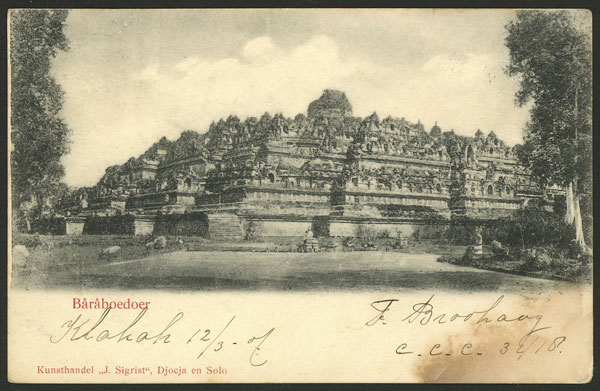 Båråboedoer
Klakah 12/3-05
F.
c.c.c. 32/18.
Kunsthandel „J. Sigrist“, Djocja en Solo